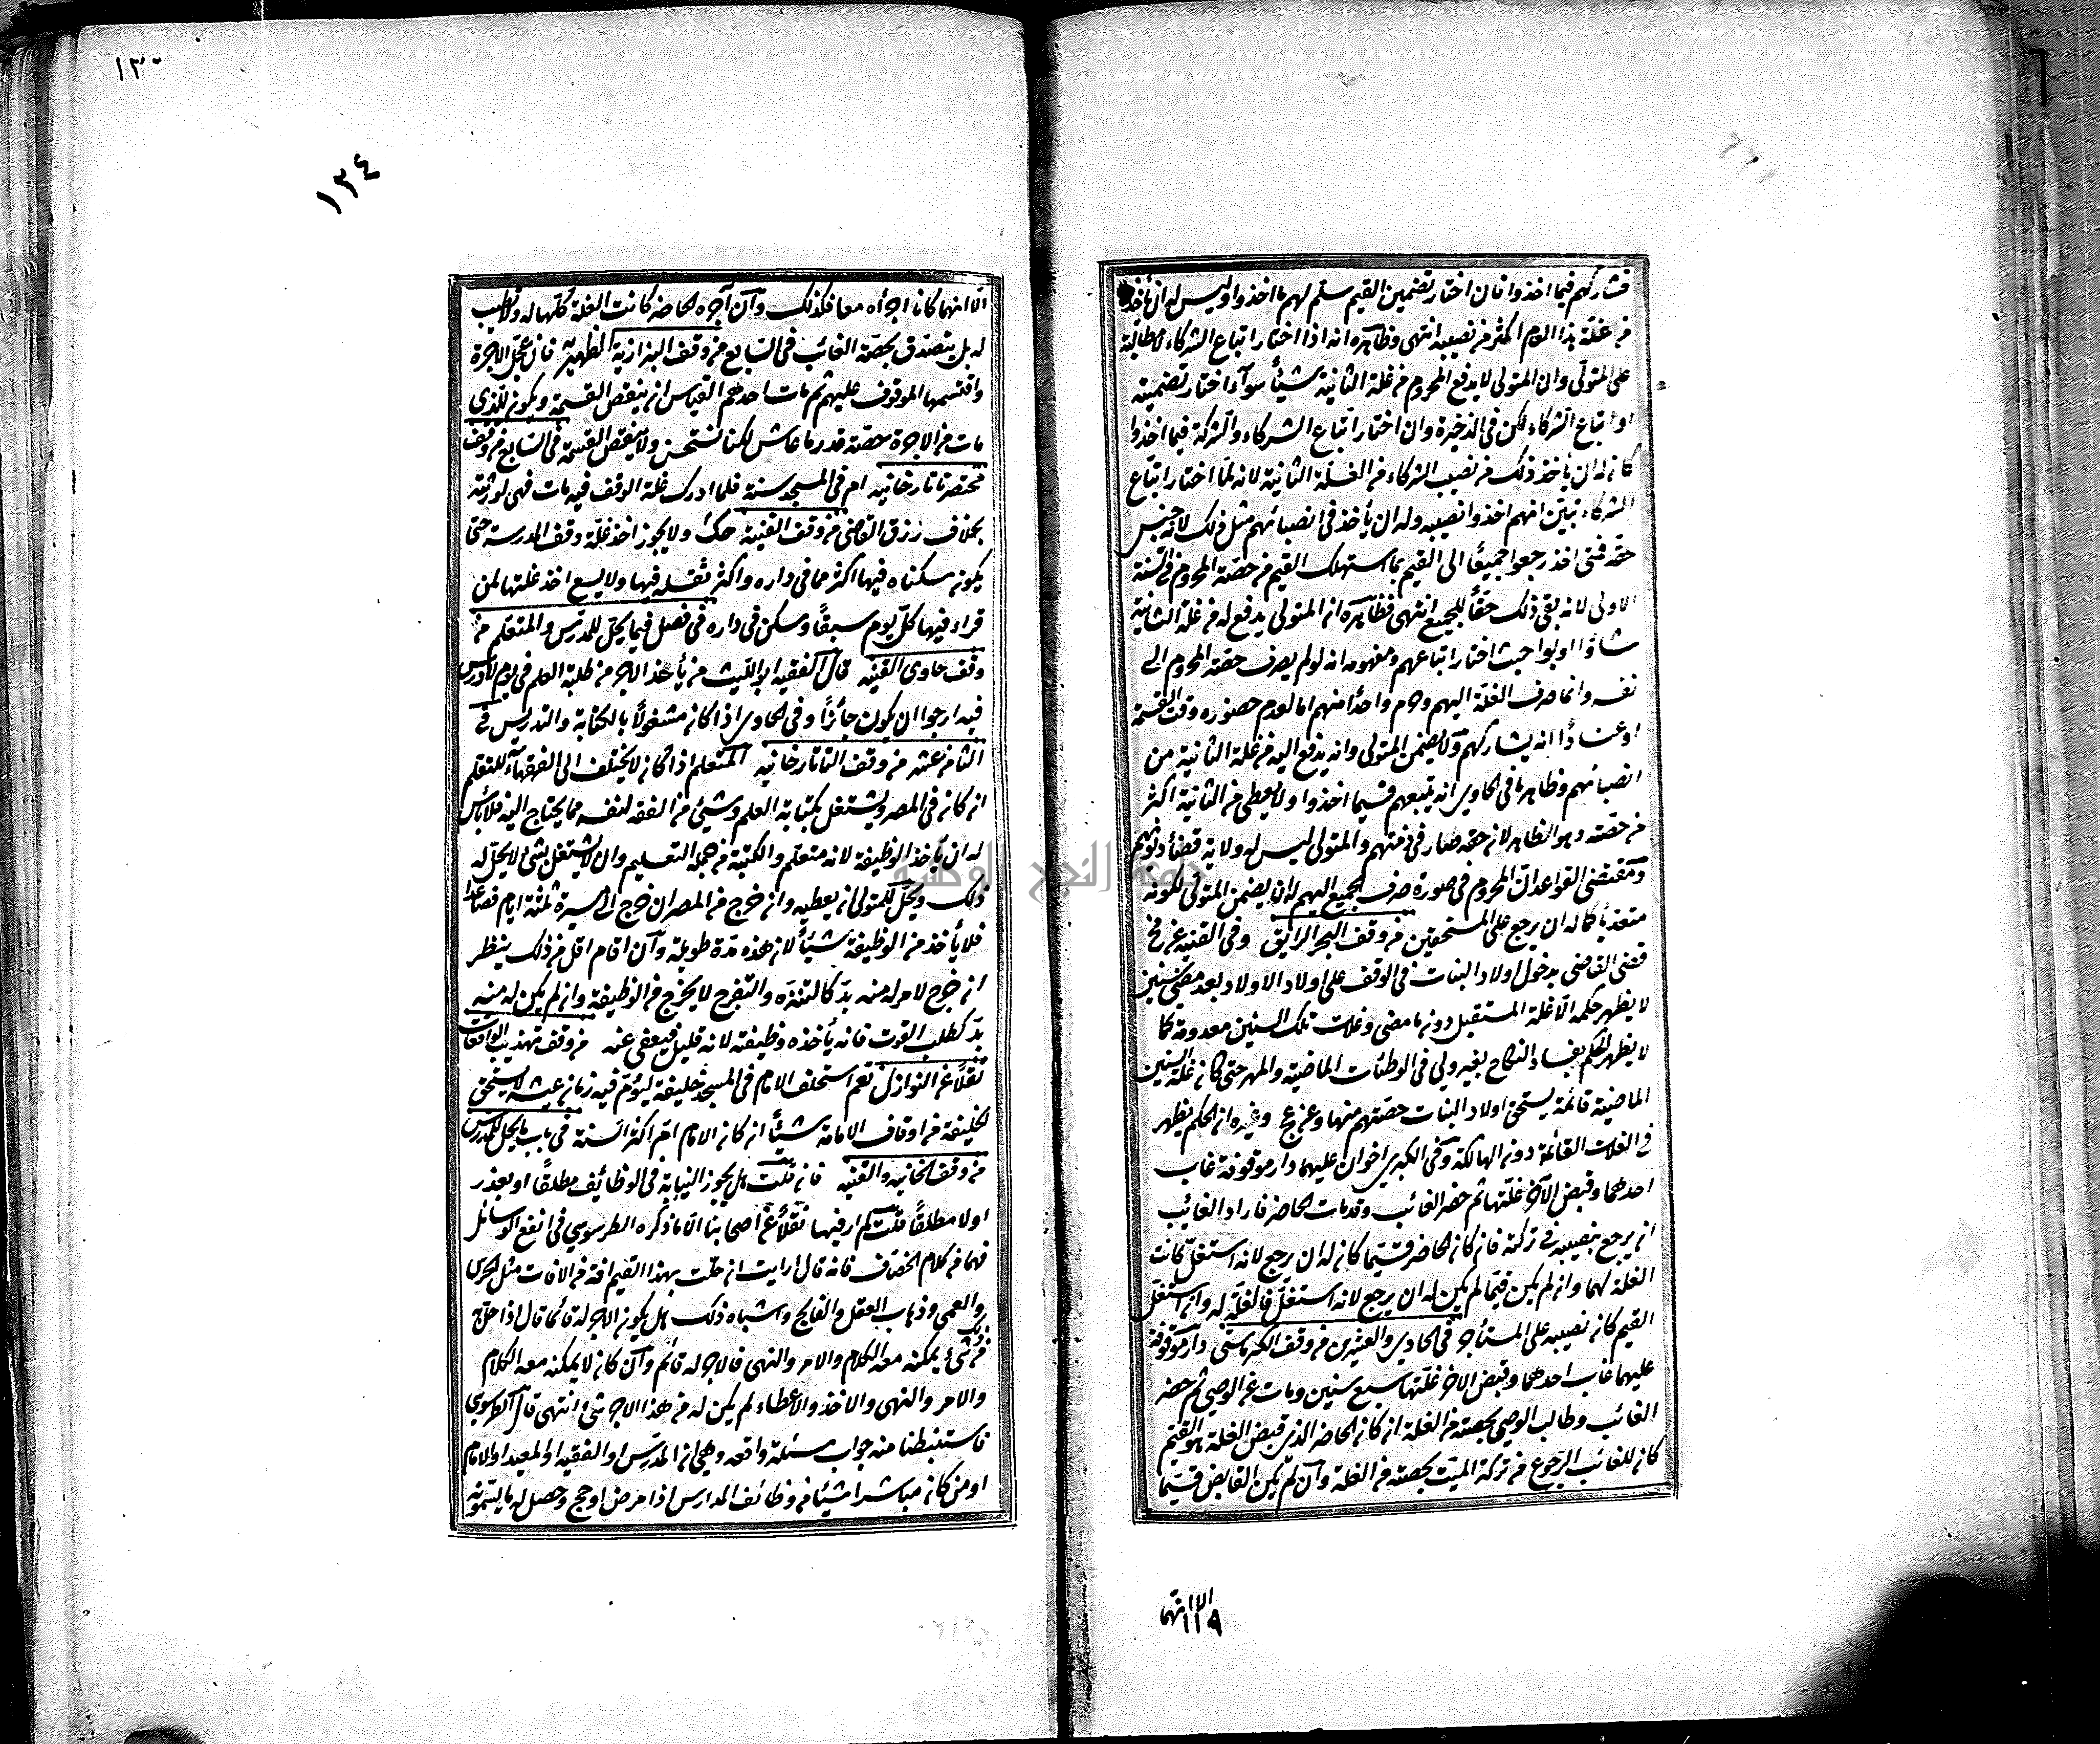 فشاركهم فيما اخذوا فان اختار تضمين القيم سلم لهم ما اخذوا وليس له ان يأخذ
من غلة هذا العام اكثر من نصيبه انتهى وظاهره انه اذا اختار اتباع الشركاء لا مطالبة
على المتولى وان المتولى لا يدفع المحروم من غلة الثانية شيئا سوآء اختار تضمينه
او اتباع الشركاء لكن فى الذخيرة وان اختار اتباع الشركاء والشركة فيما اخذوا
كان له ان يأخذ ذلك من نصيب الشركاء من الغلة الثانية لانه لما اختار اتباع
الشركاء تبين انهم اخذوا نصيبه وله ان يأخذ فى انصبائهم مثل ذلك لانه جنس
حقه فمتى اخذ رجعوا جميعا الى القيم بما استهلك القيم من حصة المحروم فى السنة
الاولى لانه بقى ذلك حقا للجميع انتهى فظاهره ان المتولى يدفع له من غلة الثانية
شاؤا او ابوا حيث اختار اتباعهم ومفهومه انه لو لم يصرف حصة المحروم الى
نفسه وانما صرف الغلة اليهم وحرم واحدا منهم اما لعدم حضوره وقت القسمة
او عنادا انه يشاركهم ولا يضمن المتولى وانه يدفع اليه من غلة الثانية من
انصبائهم وظاهر ما فى الحاوى انه يتبعهم فيما اخذوا ولا يعطى من الثانية اكثر
من حصته وهو الظاهر لان حقه صار فى ذمتهم والمتولى ليس له ولاية قضاء ديونهم
ومقتضى القواعد ان المحروم فى صورة صرف الجميع اليهم له ان يضمن المتولى لكونه
متعديا كما له ان يرجع على المستحقين من وقف البحر الرايق وفى القنيه عن نج
قضى القاضى بدخول اولاد البنات فى الوقف على اولاد الاولاد بعد مضى سنين
لا يظهر حكمه الا غلة المستقبل دون ما مضى وغلات تلك السنين معدومة كما
لا يظهر الحكم بفساد النكاح بغير ولى فى الوطئات الماضيه والمهر حتى كان غلة السنين
الماضية قائمة يستحق اولاد البنات حصتهم منها وعن عج وغيره ان الحكم يظهر
فى الغلات القائمة دون الهالكة وفى الكبرى اخوان عليهما دار موقوفة غاب
احدهما وقبض الآخر غلتها ثم حضر الغائب وقد مات الحاضر فاراد الغائب
ان يرجع بنصيبه فى تركته فان كان الحاضر قيما كان له ان يرجع لانه استغل كانت
الغلة لهما وان لم يكن قيما لم يكن له ان يرجع لانه استغل فالغلة له وان استغل
القيم كان نصيبه على المستأجر فى الحادى والعشرين من وقف الكرماستى دار موقوفة
عليهما غاب احدهما وقبض الاخر غلتها سبع سنين ومات عن الوصى ثم حضر
الغائب وطالب الوصى بحصته من الغلة ان كان الحاضر الذى قبض الغلة هو القيم
كان للغائب الرجوع من تركة الميت بحصته من الغلة وان لم يكن القابض قيما
الا انهما
١١٩
١٣٠
١٢٤
الا انهما كانا اجراه معا فكذلك وان آجره الحاضر كانت الغلة كلها له ولا تطيب
له بل يتصدق بحصة الغائب فى السابع من وقف البزازية الظهيرية فان عجل الاجرة
واقتسمها الموقوف عليهم ثم مات احدهم القياس ان ينقض القسمة ويكون للذى
مات من الاجرة حصة قدر ما عاش لكنا نستحسن ولا ينقض القسمة فى السابع من وقف
مختصر تاتارخانيه ام فى المسجد سنة فلما ادرك غلة الوقف فيه مات فهى لورثته
بخلاف رزق القاضى من وقف القنية حك ولا يجوز اخذ غلة وقف المدرسة حتى
يكون سكناه فيها اكثر مما فى داره واكثر ثقله فيها ولا يسع اخذ غلتها لمن
قراء فيها كل يوم سبقا وسكن فى داره فى فصل فيما يحل للمدرس والمتعلم من
وقف حاوى القنيه قال الفقيه ابو الليث من يأخذ الاجر من طلبة العلم فى يوم لا درس
فيه ارجوا ان يكون جائزا وفى الحاوى اذا كان مشغولا بالكتابة والتدريس فى
الثامن عشر من وقف التاتارخانيه المتعلم اذا كان لا يختلف الى الفقهاء للتعلم
ان كان فى المصر ويشتغل بكتابة العلم وشيئ من الفقه لنفسه مما يحتاج اليه فلا بأس
له ان يأخذ الوظيفة لانه متعلم والكتبة من جملة التعليم وان لا يشتغل بشئ لا يحل له
ذلك ويحل للمتولى ان يعطيه وان خرج من المصر ان خرج الى مسيرة ثلثة ايام فصاعدا
فلا يأخذ من الوظيفة شيئا لان هذه مدة طويلة وان اقام اقل من ذلك ينظر
ان خرج لامر له منه بد كالتنزه والتفرج لا يخرج من الوظيفة وان لم يكن له منه
بد كطلب القوت فانه يأخذه وظيفته لانه قليل فيعفى عنه من وقف تهذيب الواقعات
نقلا عن النوازل نعم استخلف الامام فى المسجد خليفة ليؤم فيه زمان غيبته لا يستحق
الخليفة من اوقاف الامامة شيئا ان كان الامام ام اكثر السنة فى باب ما يحل للمدرس
من وقف الخانيه والقنيه فان قلت هل يجوز النيابة فى الوظائف مطلقا او بعذر
او لا مطلقا قلت لم ار فيها نقلا عن اصحابنا الا ما ذكره الطرسوسى فى انفع الوسائل
فهما من كلام الخصاف فانه قال ارايت ان حلت بهذا القيم افة من الافات مثل الخرس
والعمى وذهاب العقل والفالج واشباه ذلك هل يكون الاجر له قائما قال اذا حل به
من ذلك شئ يمكنه معه الكلام والامر والنهى فالاجر له قائم وان كان لا يمكنه معه الكلام
والامر والنهى والاخذ والاعطاء لم يكن له من هذا الاجر شئ انتهى قال الطرسوسى
فاستنبطنا منه جواب مسئلة واقعه وهى ان المدرس او الفقيه او المعيد او الامام
او من كان مباشرا شيئا من وظائف المدارس اذا مرض او حج وحصل له ما يسمونه
جامعة النجاح الوطنية